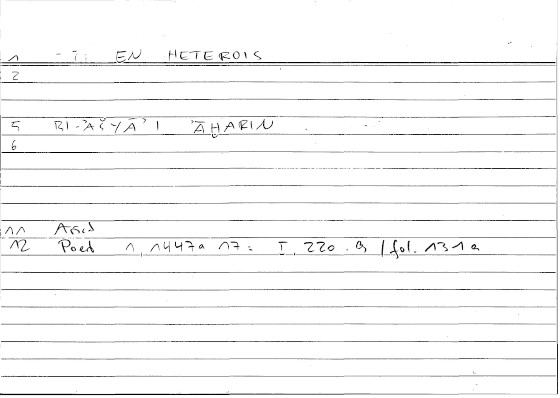 1 EN HETEROIS
2
5 BI-AŠYĀ'I 'ĀḪARĪN
6
11 Arist
12 Poet 1, 1447a 17: I, 220.9 / fol. 131a